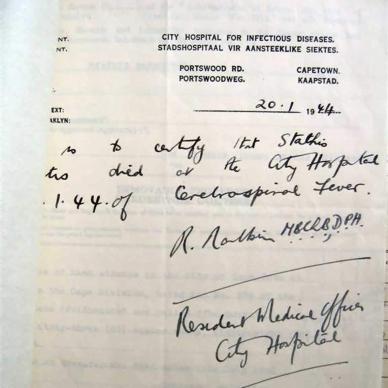 NT. CITY HOSPITAL FOR INFECTIOUS DISEASES.
NT. STADSHOSPITAAL VIR AANSTEEKLIKE SIEKTES.
PORTSWOOD RD. CAPETOWN.
PORTSWOODWEG. KAAPSTAD.
20.1 1944.
EXT:
KLYN:
is to certify that Stathis
tis died at the City Hospital
.1.44. of Cerebrospinal Fever.
R. M.B.Ch.B. D.P.H.
Resident Medical Officer
City Hospital